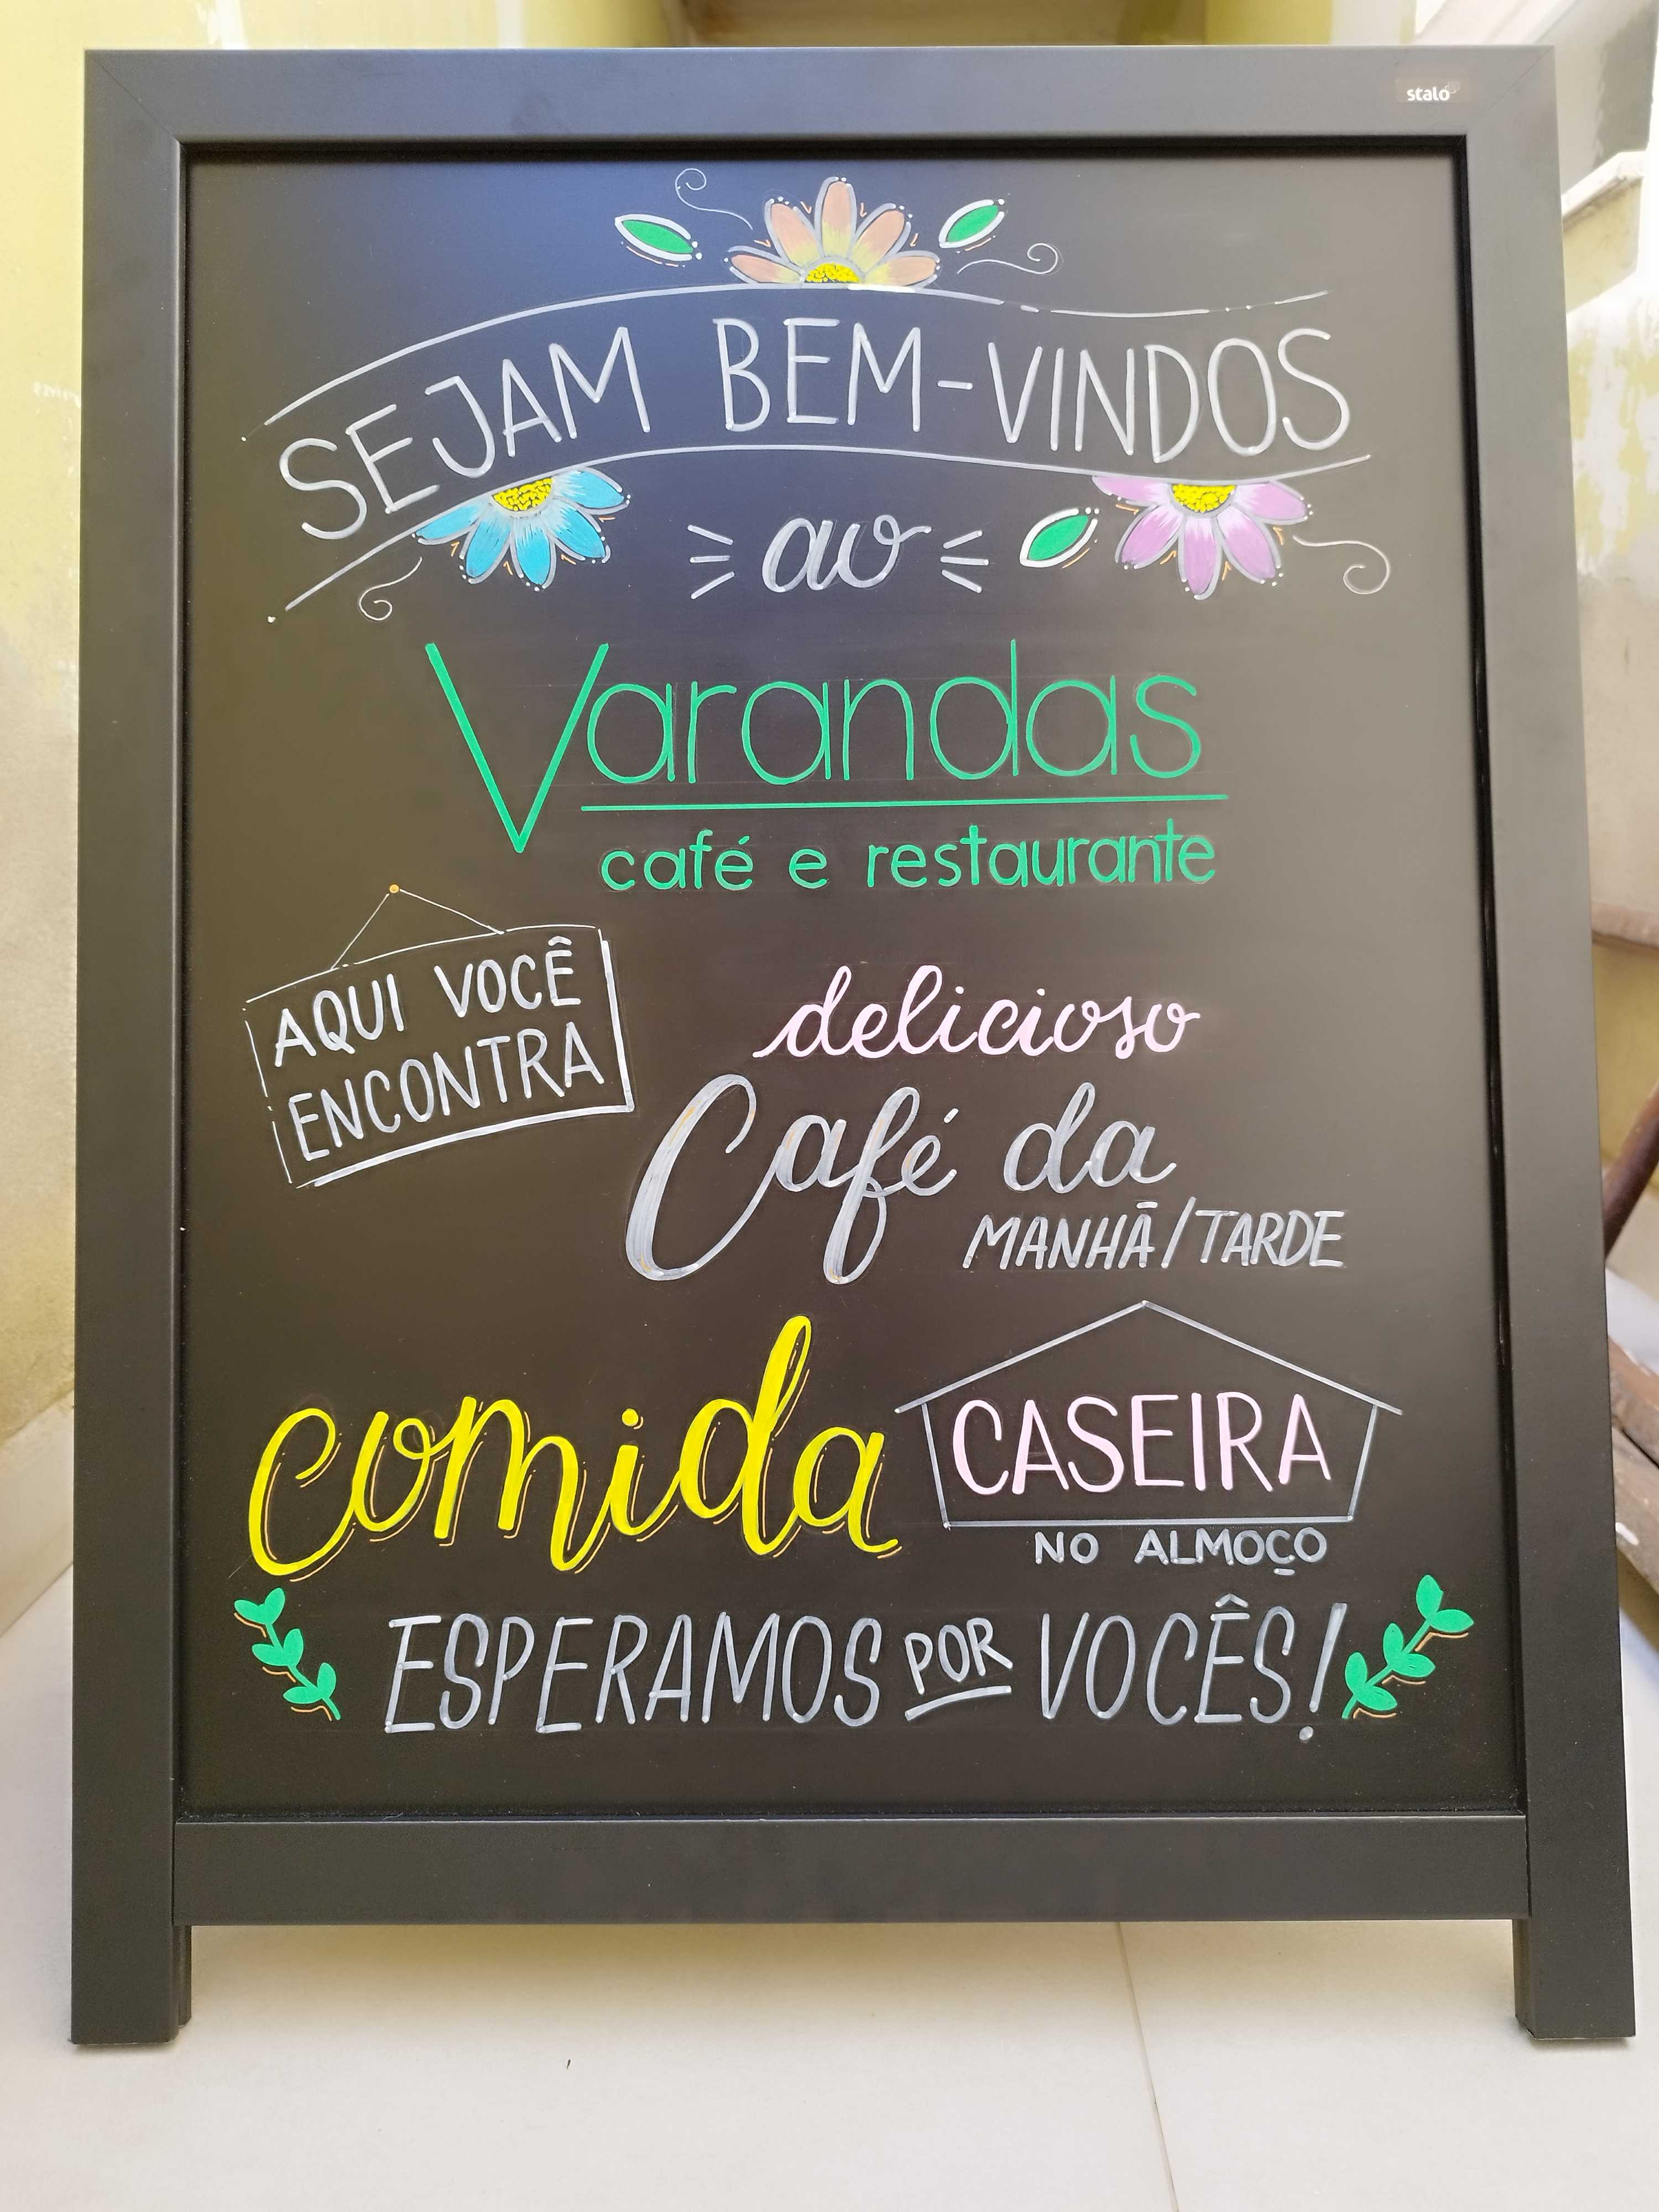 stalo
SEJAM BEM-VINDOS
ao
Varandas
café e restaurante
AQUI VOCÊ
ENCONTRA
delicioso
Café da
MANHÃ/TARDE
comida
CASEIRA
NO ALMOÇO
ESPERAMOS POR VOCÊS!